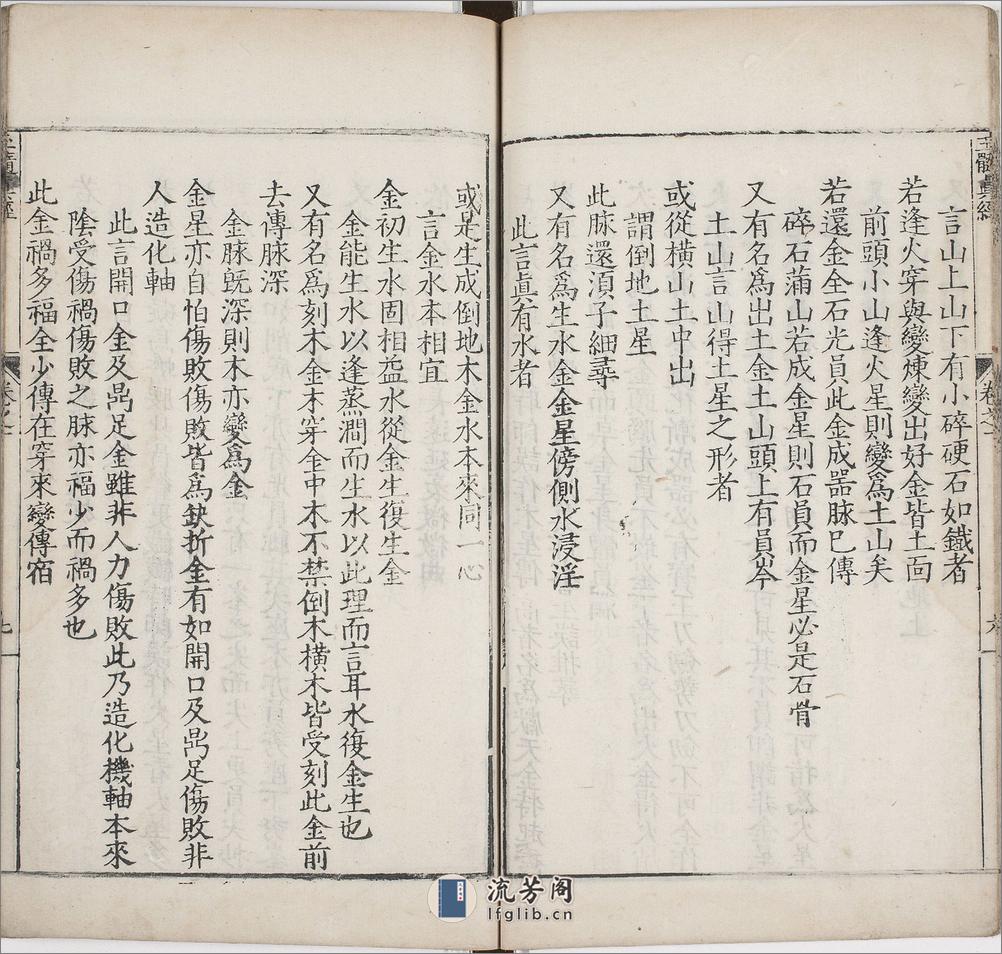 言山上山下有小碎硬石如鐵者
若逢火穿與變棟變出好金皆土面
前頭小山逢火星則變爲土山矣
若還金全石光員此金成噐脉巳傳
碎石蒲山若成金星則石員而金星必是石骨
又有名爲出土金土山頭上有員岑
土山言山得土星之形者
或從橫山土中出
謂倒地土星
此脉還湏子細尋
又有名爲生水金金星傍側水浸淫
此言眞有水者
或是生成倒地木金水本來同一心
言金水本相宜
金初生水固相益水從金生復生金
金能生水以逢蒸潤而生水以此理而言耳水復金生也
又有名爲刻木金木穿金中木不禁倒木橫木皆受刻此金前
去傳脉深
金脉旣深則木亦變爲金
金星亦自怕傷敗傷敗皆爲缺折金有如開口及鼎足傷敗非
人造化軸
此言開口金及鼎足金雖非人力傷敗此乃造化機軸本來
陰受傷禍傷敗之脉亦福少而禍多也
此金禍多福全少傳在穿來變傳宿
玉髓眞經
卷之
流芳阁
lfglib.cn